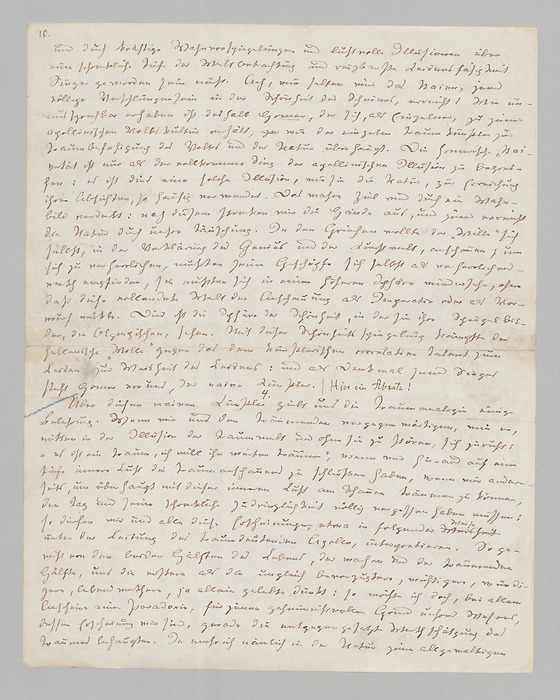 10.
und durch kräftige Wahnvorspiegelungen und lustvolle Illusionen über
eine schreckliche Tiefe der Weltbetrachtung und reizbarste Leidensfähigkeit
Sieger geworden sein muß. Ach, wie selten wird das Naive, jenes
völlige Verschlungensein in der Schönheit des Scheines, erreicht! Wie un-
aussprechbar erhaben ist deshalb Homer, der sich, als Einzelner, zu jener
apollinischen Volkskultur verhält, wie der einzelne Traumkünstler zur
Traumbefähigung des Volks und der Natur überhaupt. Die homerische „Nai-
vetät" ist nur als der vollkommene Sieg der apollinischen Illusion zu begrei-
fen: es ist dies eine solche Illusion, wie sie die Natur, zur Erreichung
ihrer Absichten, so häufig verwendet. Das wahre Ziel wird durch ein Wahn-
bild verdeckt: nach diesem strecken wir die Hände aus, und jenes erreicht
die Natur durch unsre Täuschung. In den Griechen wollte der „Wille" sich
selbst, in der Verklärung des Genius und der Kunstwelt, anschauen; um
sich zu verherrlichen, mußten seine Geschöpfe sich selbst als verherrlichens-
werth empfinden, sie mußten sich in einer höheren Sphäre wiedersehn, ohne
daß diese vollendete Welt der Anschauung als Imperativ oder als Vor-
wurf wirkte. Dies ist die Sphäre der Schönheit, in der sie ihre Spiegelbil-
der, die Olympischen, sahen. Mit dieser Schönheitsspiegelung kämpfte der
hellenische „Wille" gegen das dem künstlerischen correlative Talent zum
Leiden und zur Weisheit des Leidens: und als Denkmal seines Sieges
steht Homer vor uns, der naive Künstler. | Hier ein Absatz!
4.
Über diesen naiven Künstler giebt uns die Traumanalogie einige
Belehrung. Wenn wir uns den Träumenden vergegenwärtigen, wie er,
mitten in der Illusion der Traumwelt und ohne sie zu stören, sich zuruft:
„es ist ein Traum, ich will ihn weiter träumen", wenn wir hieraus auf eine
tiefe innere Lust des Traumanschauens zu schließen haben, wenn wir andrer-
seits, um überhaupt mit dieser inneren Lust am Schauen träumen zu können,
den Tag und seine schreckliche Zudringlichkeit völlig vergessen haben müssen:
so dürfen wir uns alle diese Erscheinungen etwa in folgender Weise
unter der Leitung des traumdeutenden Apollo, interpretieren. So ge-
wiß von den beiden Hälften des Lebens, der wachen und der träumenden
Hälfte, uns die erstere als die ungleich bevorzugtere, wichtigere, würdi-
gere, lebenswerthere, ja allein gelebte dünkt: so möchte ich doch, bei allem
Anscheine einer Paradoxie, für jenen geheimnißvollen Grund unsres Wesens,
dessen Erscheinung wir sind, gerade die entgegengesetzte Werthschätzung des
Traumes behaupten. Je mehr ich nämlich in der Natur jene allgewaltigen